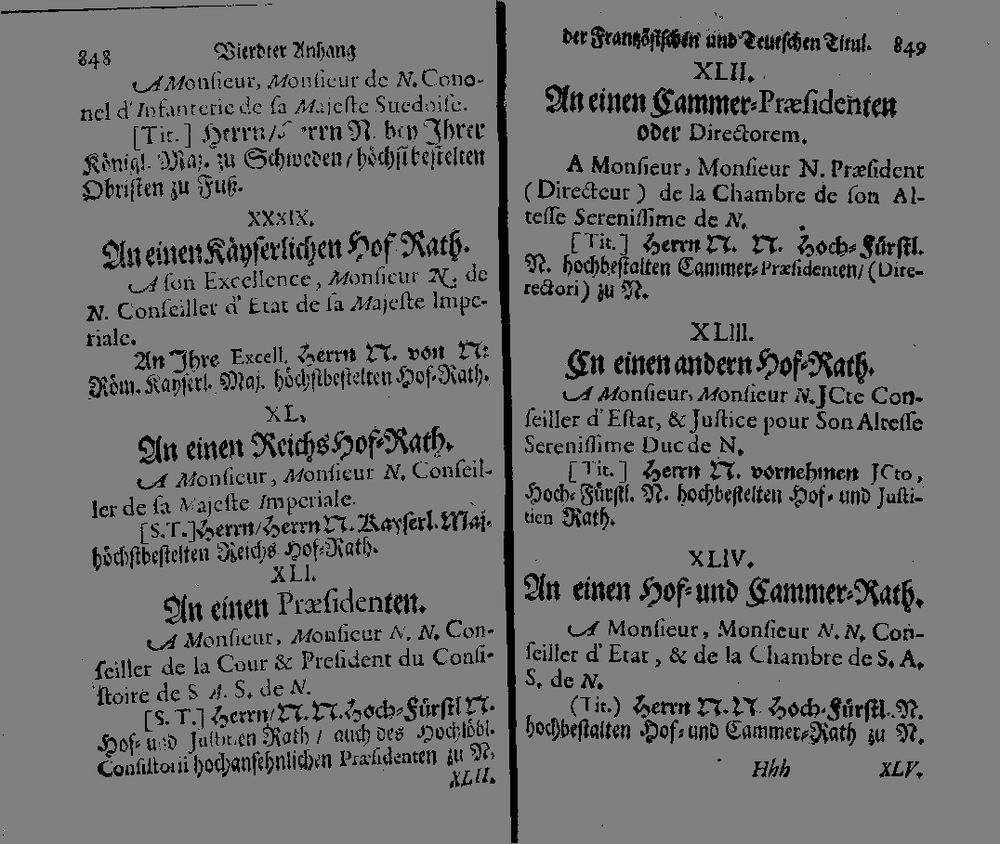 848 Vierdter Anhang
A Monsieur, Monsieur de N. Cono-
nel d'Infanterie de sa Majeste Suedoise.
[Tit.] Herrn/ N. bey Ihrer
Königl. Maj. zu Schweden/ höchstbestelten
Obristen zu Fuß.
XXXIX.
An einen Käyserlichen Hof-Rath.
A son Excellence, Monsieur N. de
N. Conseiller d'Etat de sa Majeste Impe-
riale.
An Ihre Excell. Herrn N. von N.
Röm. Kayserl. Maj. höchstbestelten Hof-Rath.
XL.
An einen Reichs Hof-Rath.
A Monsieur, Monsieur N. Conseil-
ler de sa Majeste Imperiale.
[S.T.] Herrn/ Herrn N. Kayserl. Maj.
höchstbestelten Reichs Hof-Rath.
XLI.
An einen Præsidenten.
A Monsieur, Monsieur N. N. Con-
seiller de la Cour & President du Consi-
stoire de S A. S. de N.
[S.T.] Herrn/ N. N. Hoch-Fürstl N.
Hof- und Justitien Rath/ auch des Hochlöbl.
Consistorii hochansehnlichen Præsidenten zu N.
XLII.
der Frantzösischen und Teutschen Titul. 849
XLII.
An einen Cammer-Præsidenten
oder Directorem.
A Monsieur, Monsieur N. Præsident
(Directeur) de la Chambre de son Al-
tesse Serenissime de N.
[Tit.] Herrn N. N. Hoch-Fürstl.
N. hochbestalten Cammer-Præsidenten/ (Dire-
rectori) zu N.
XLIII.
En einen andern Hof-Rath.
A Monsieur, Monsieur N. JCte Con-
seiller d'Estat, & Justice pour Son Altesse
Serenissime Duc de N.
[Tit.] Herrn N. vornehmen JCto,
Hoch-Fürstl. N. hochbestelten Hof- und Justi-
tien Rath.
XLIV.
An einen Hof- und Cammer-Rath.
A Monsieur, Monsieur N. N. Con-
seiller d'Etat, & de la Chambre de S. A.
S. de N.
(Tit.) Herrn N. N. Hoch-Fürstl. N.
hochbestalten Hof- und Cammer-Rath zu N.
Hhh XLV.